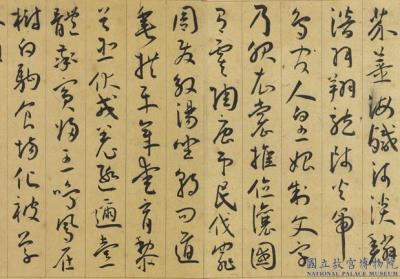 芥薑海鹹河淡鱗
潛羽翔龍師火帝
鳥官人皇始制文字
乃服衣裳推位讓國
有虞陶唐弔民伐罪
周發殷湯坐朝問道
垂拱平章愛育黎
首臣伏戎羌遐邇壹
體率賓歸王鳴鳳在
樹白駒食場化被草
木
國立故宮博物院
NATIONAL PALACE MUSEUM